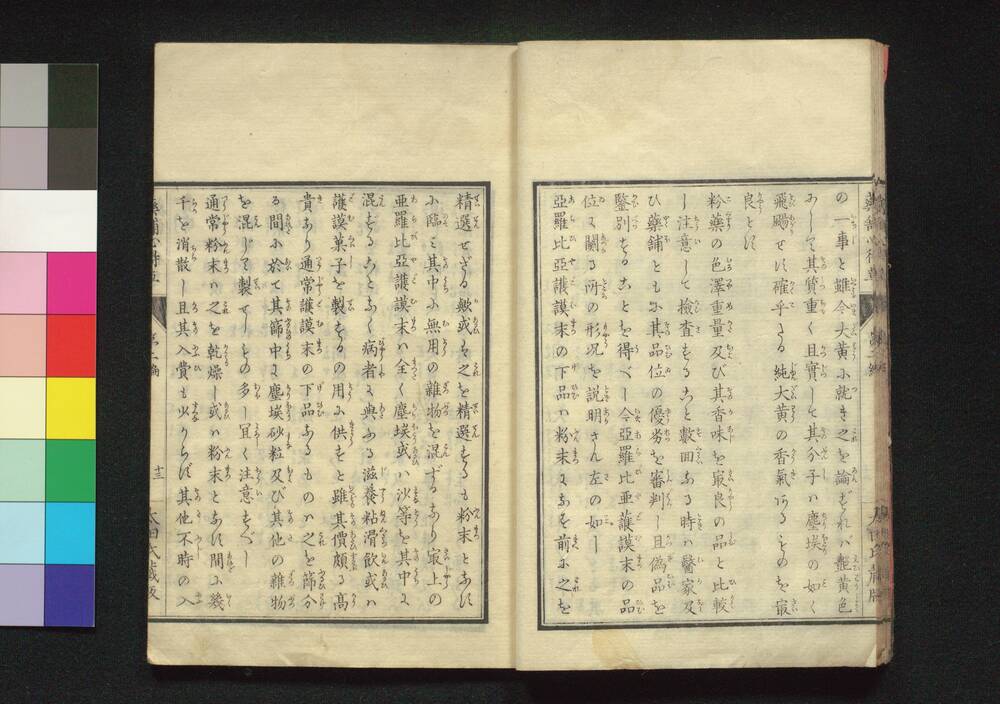 の一事と雖今大黄ふ就き之を論ぞれバ艶黄色
ふして其質重く且實して其分子ハ塵埃の如く
飛颺せバ確乎たる純大黄の香氣あるものを最
良とバ
粉藥の色澤重量及び其香味を最良の品と比較
し注意して檢査するこ と數回ふる時ハ醫家及
ひ藥舗ともふ其品位の優劣を審判し且偽品を
鑒別することを得べし今亞羅比亜護謨末の品
位に關る所の形况を説明さん左の如し
亞羅比亞護謨末の下品ハ粉末にふを前ふ之を
精選せざる歟或ハ之を精選するも粉末とふに
ふ臨ミ其中ふ無用の雜物を混ずるあり最上の
亞羅比亞護謨末ハ全く塵埃或ハ沙等を其中に
混ずることふく病者に與ふる滋養粘滑飲或ハ
護謨菓子を製するの用ふ供すと雖其價頗る高
貴あり通常護謨末の下品ふるものハ之を篩分
る間ふ於て其篩中に塵埃砂粒及び其他の雜物
を混じて製せしもの多し冝く注意すべし
通常粉末ハ之を乾燥し或ハ粉末とふに間ふ幾
千を消散し且其入費も少からバ其他不時の入
藥舗心得草
第二編
十三
太田氏藏版